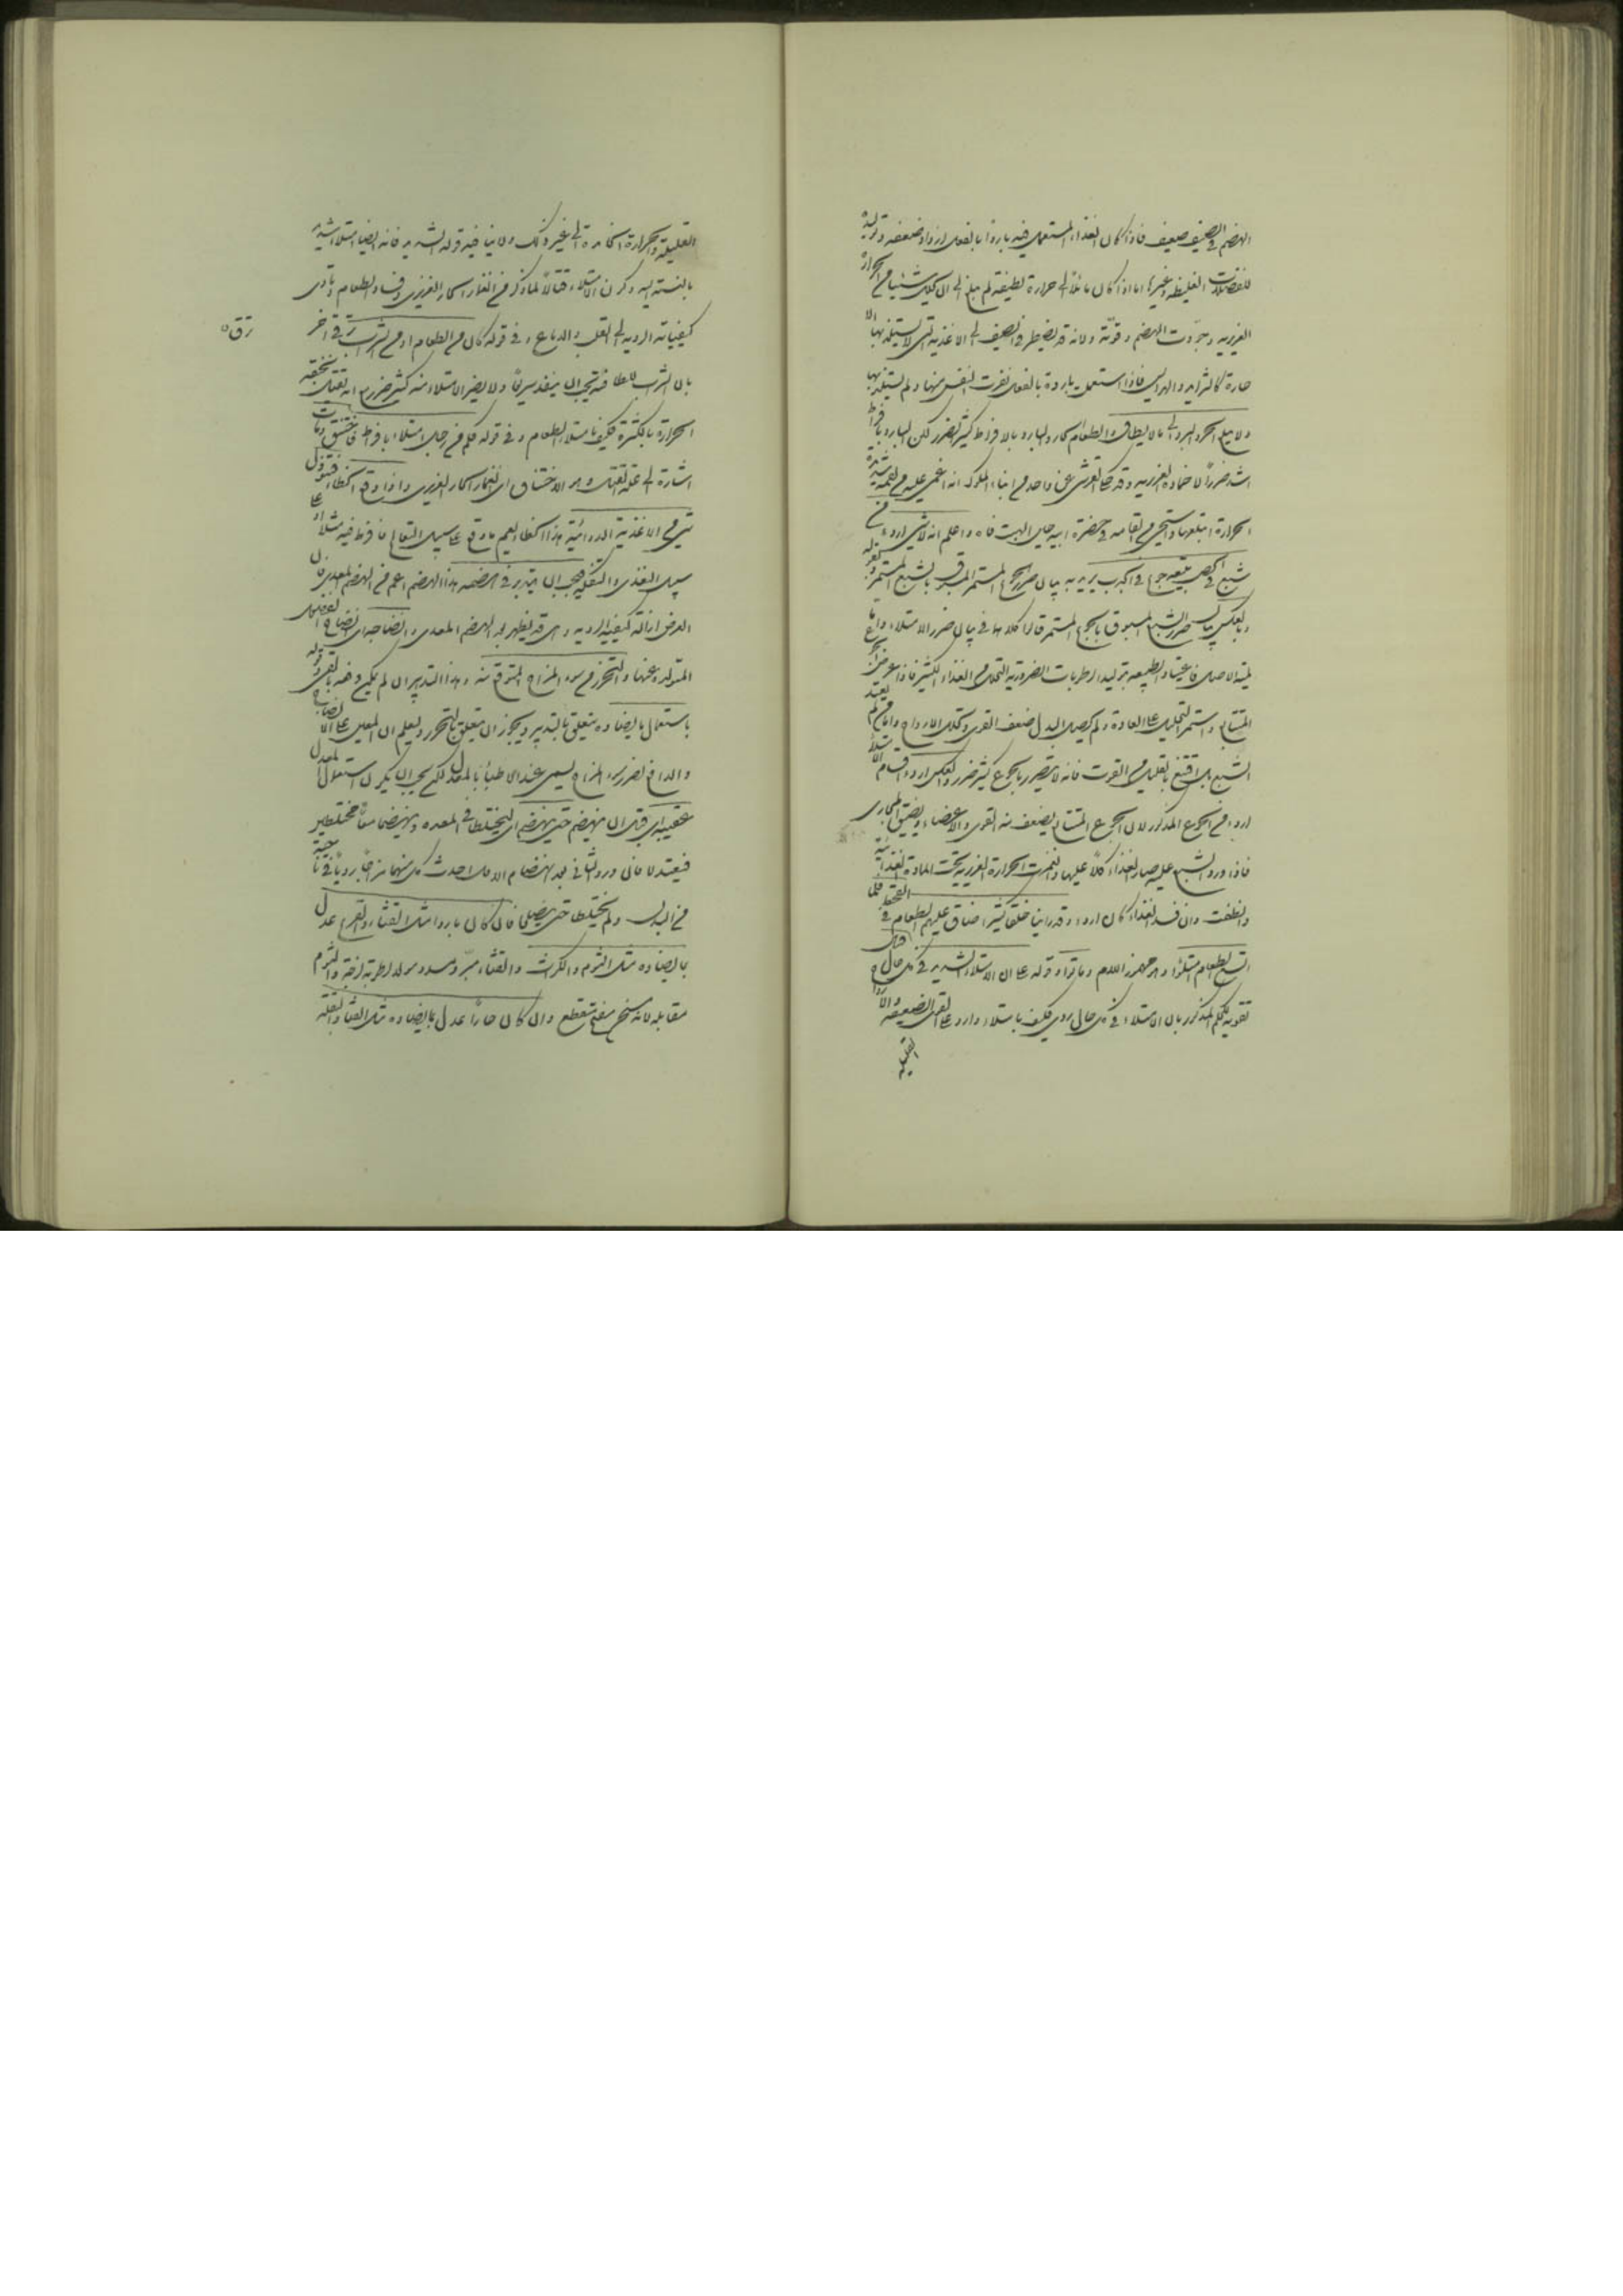 الهضم في الصيف ضعيف فاذا كان الغذاء المستعمل فيه باردا بالفعل ازداد ضعفه وتوليده
للفضلات الغليظة وغيرها اما اذا كان مائلا الى حرارة لطيفة لم يبلغ الى ان يحلل شيئا من الحرارة
الغريزيه وجودت الهضم وقوته ولانه قد يضطر في الصيف الى الاغذية التي لا يستلذ بها الا
حارة كالثرايد والهرايس فاذا استعملت باردة بالفعل نفرت النفس منها ولم يستلذ بها
ولا يبلغ الحر والبرد الى ما لا يطاق والطعام الحار والبارد بالافراط كثير الضرر لكن البارد بافراط
اشد ضررا لاخماده الغريزيه وقد حكى القرشي عن واحد من ابناء الملوك انه اغمي عليه من لقمة شديدة
الحرارة ابتلعها واستحيى من القائه في حضرة ابيه واعلم انه لا شيء اردء من
شبع في الخصب يتبعه جوع في الجدب يريد به بيان ضرر الجوع المستمر المسبوق بالشبع المستمر وقوله
وبالعكس بيان ضرر الشبع المسبوق بالجوع المستمر في بيان ضرر الامتلاء
فاعتياد الطبيعه بتوليد الرطوبات الضرورية التحلل من الغذاء الكثير فاذا عرض الجوع
المتتابع واستمر التحليل على العادة ولم يحصل البدل ضعف القوى وتحلل الارواح واما من لم يعتد
الشبع بل اقتنع بالقليل من القوت فانه لا يتضرر بالجوع كثير ضرر والعكس اردء اقسام الامتلاء
اردء من الجوع المذكور لان الجوع المتتابع يضعف منه القوى والاعضاء ويضيق المجارى
فاذا ورد الشبع عليه صار الغذاء كلا عليها وانغمرت الحرارة الغريزيه تحت المادة الغذائية
وانطفت وان فسد الغذاء كان اردء وقد راينا خلقا كثيرا ضاق عليهم الطعام في القحط فلما
اتسع الطعام امتلؤا وقوله على ان الامتلاء الشديد في كل حال قتال
تقويه للحكم المذكور بان الامتلاء في كل حال ردى فكيف بامتلاء وارد على القوى الضعيفه والارواح
القليله
القليلة والحرارة الخامدة الى غير ذلك ولا ينافيه قوله الشديد فانه ايضا امتلاء شديد
بالنسبة اليه وكون الامتلاء قتالا لما ذكر من انغمار الحار الغريزى وفساد الطعام وتادى
كيفياته الرديه الى القلب والدماغ وفي قوله كان من الطعام او من الشراب رق في اخر
رق
بان الشراب للطافته يجب ان ينفذ سريعا ولا يضر الامتلاء منه كثير ضرر
الحرارة بالكثرة فكيف بامتلاء الطعام وفي قوله فكم من رجل امتلاء بافراط فاختنق ومات
اشارة الى علة القتل وهو الاختناق اى انغمار الحار الغريزى واذا وقع الخطاء فتنوول
شئ من الاغذية الدوائية هذا الخطا يعم ما وقع على سبيل التناول فافرط فيه مثلا او على
سبيل التغذى والتفكه فيجب ان يتدبر في هضمه هذا الهضم اعم من الهضم المعدى فان
الغرض ازالة كيفيته الرديه وهى قد يظهر بعد الهضم المعدى
المتولدة عنها والتحرز من سوء المزاج المتوقع منه وهذا التدبير ان لم يكن وقوله
باستعمال ما يضاده يتعلق بالتدبير ويجوز ان يتعلق بالتحرز وليعلم ان المعين على
والدافع لضرر سوء المزاج يسمى عند الاطباء بالمعدل لكن يجب ان يكون استعمال المعدل
عقيبه اى قبل ان ينهضم حتى ينهضم اى ليختلطا في المعده وينهضما معا مختلطين
فيعتدلا فان ورود الثانى بعد انهضام الاول احدث كل منهما مزاجا رديا في ناحية
من البدن ولم يختلطا حتى يصلحا فان كان باردا مثل القثاء والقرع عدل
بما يضاده مثل الثوم والكراث والقثاء مبرد ومسدد مولد لرطوبة لزجة والثوم
مقابله لانه مسخن مفتح مقطع وان كان حارا عدل بما يضاده مثل القثاء والبقلة